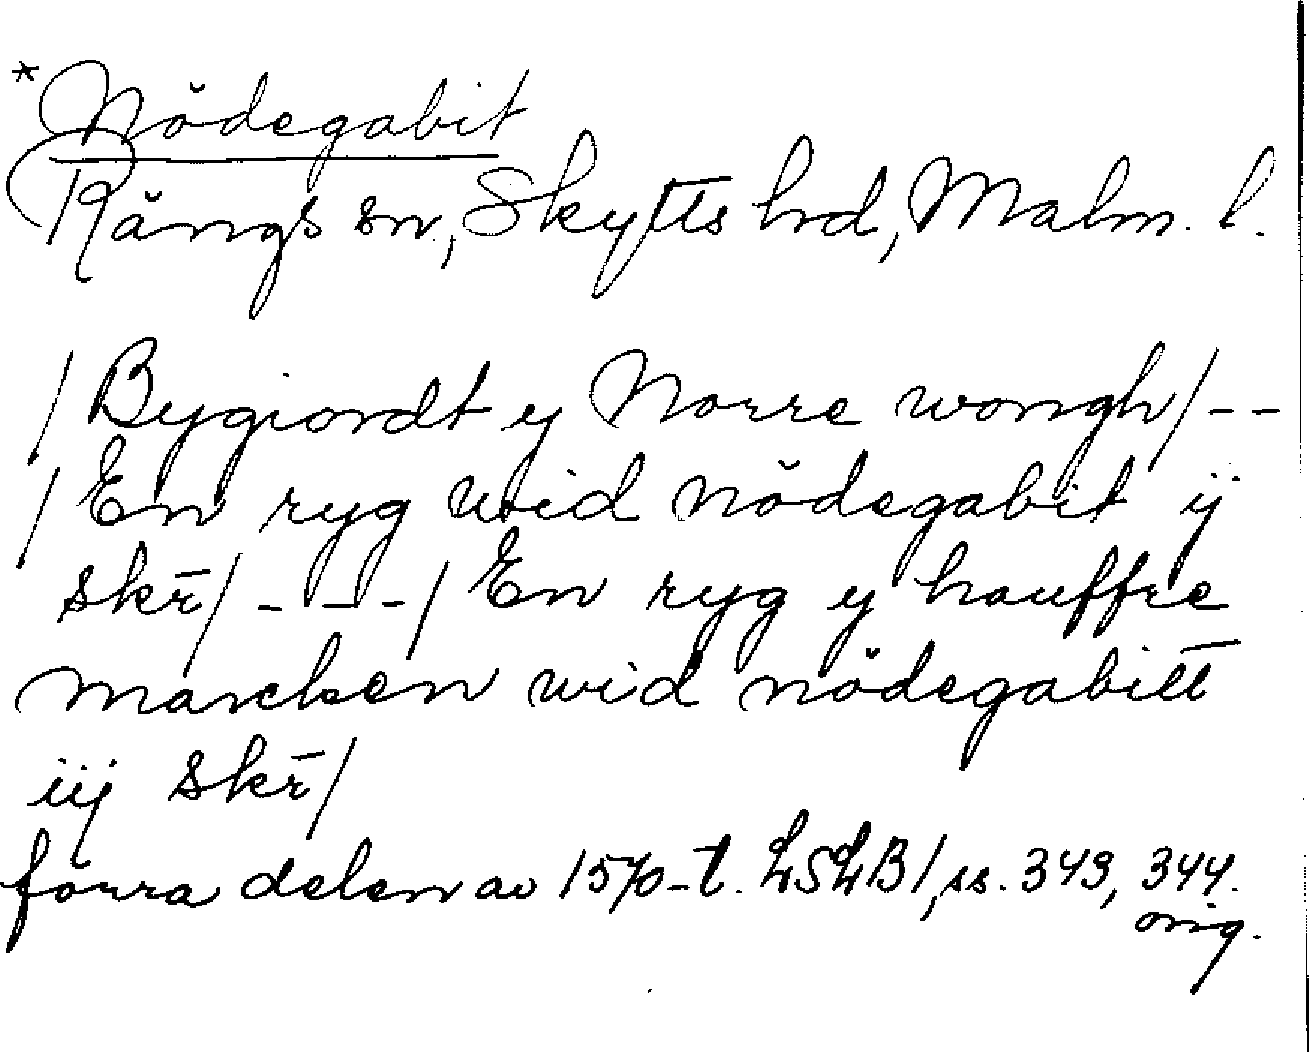 *Nödegabit
Rängs sn, Skytts hd, Malm. l.
/Bygiordt y Norre wongh/--
/En ryg wid nödegabit ij
skr̄/---/En ryg y hauffre
marcken wid nödegabitt
iij skr̄/
förra delen av 1570-t. LSLB1, ss. 343, 344.
orig.